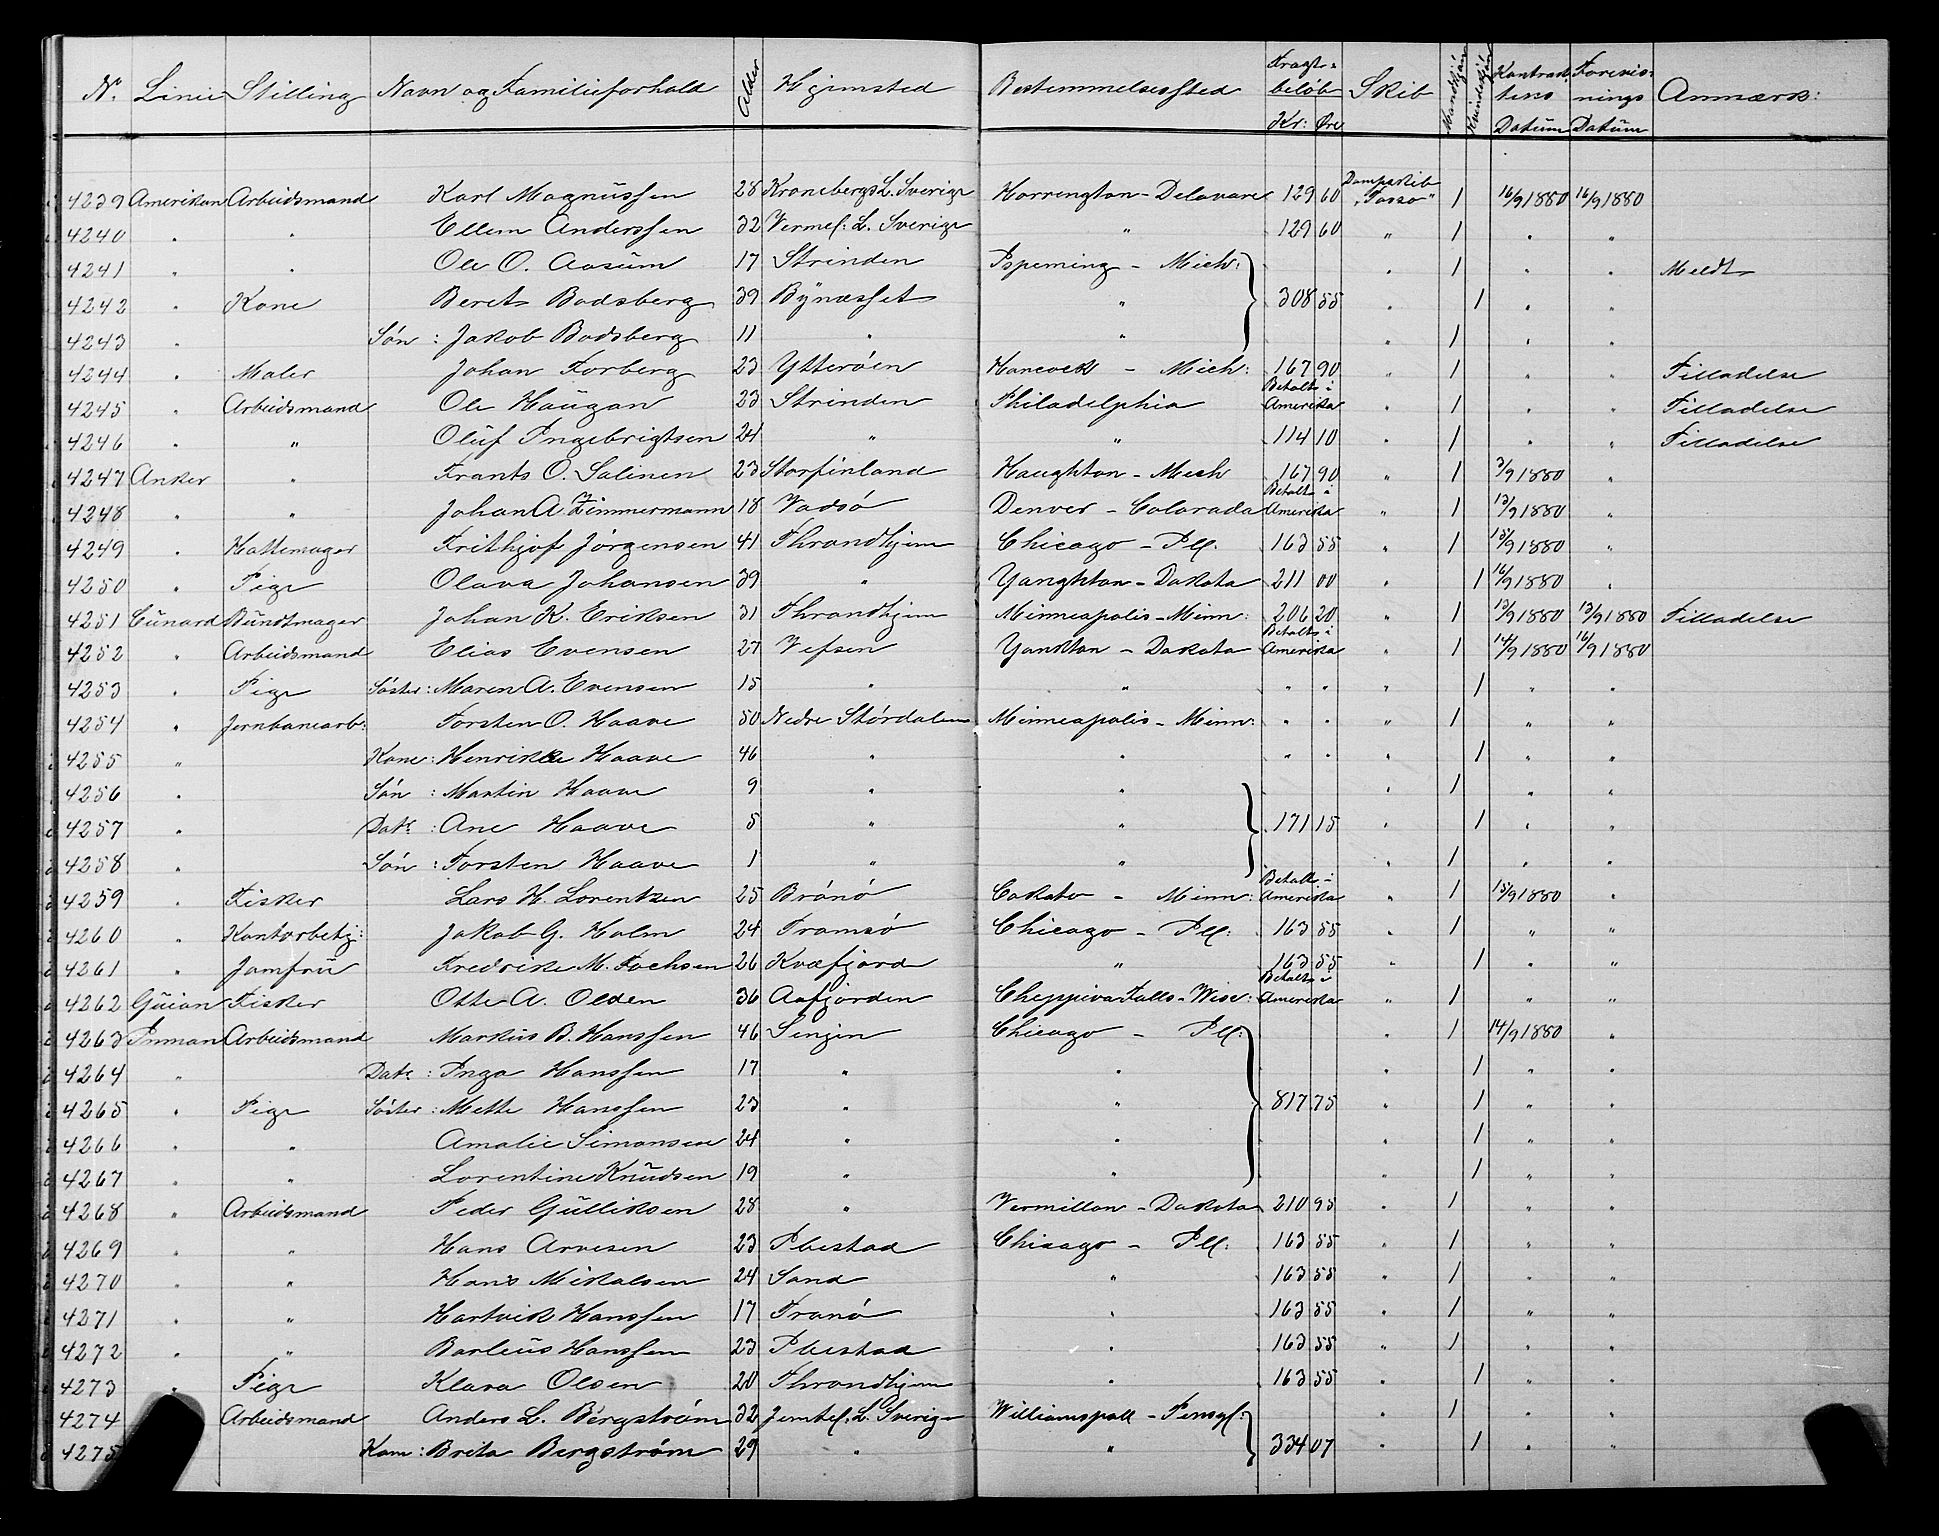 N. Linie Stilling Navn og Familieforhold Alder Hjemsted Bestemmelsessted Fragtbeløb Kr: Øre Skib Mandkjøn Kvindekjøn Kontraktens Datüm Forevisnings Datüm Anmærk:
4239 Amerikan Arbeidsmand Karl Magnüssen 28 Kronebergs L. Sverige Harrington - Delavare 129 60 Dampskib "Tasso" 1 16/9 1880 16/9 1880
4240 " " Ellem Anderssen 32 Vermel: L. Sverige " 129 60 " 1 " "
4241 " " Ole O. Aasüm 17 Strinden Ispeming - Mich: " 1 " " Meldt
4242 " Kone Beret Badsberg 39 Bÿnæsset " 308 55 " 1 " "
4243 " Søn : Jakob Badsberg 11 " " " 1 " "
4244 " Maler Johan Forberg 23 Ytterøen Hancock - Mich: 167 90 " 1 " " Tilladelse
4245 " Arbeidsmand Ole Haügan 23 Strinden Philadelphia Betalt i Amerika " 1 " " Tilladelse
4246 " " Olüf Ingebrigtsen 24 " " 114 10 " 1 " " Tilladelse
4247 Anker " Frants O. Salinen 23 Storfinland Haughton - Mich 167 90 " 1 3/9 1880 "
4248 " " Johan A Zimmermann 18 Vadsø Denver - Colorada Betalt i Amerika " 1 13/9 1880 "
4249 " Hattemager Frithjof Jørgensen 41 Thrandhjem Chicago - Ill. 163 55 " 1 15/9 1880 "
4250 " Pige Olava Johansen 39 " Yanghton - Dakota 211 00 " 1 16/9 1880 "
4251 Cünard Bündtmager Johan K. Eriksen 31 Thrandhjem Minneapolis - Minn: 206 20 " 1 13/9 1880 13/9 1880 Tilladelse
4252 " Arbeidsmand Elias Evensen 27 Vefsen Yankton - Dakota Betalt i Amerika " 1 14/9 1880 16/9 1880
4253 " Pige Søster : Maren A. Evensen 15 " " " " " 1 " "
4254 " Jernbanearb: Torsten O. Haave 50 Nedre Størdalen Minneapolis - Minn: " " " 1 " "
4255 " Kone : Henrikke Haave 46 " " " " " 1 " "
4256 " Søn : Martin Haave 9 " " " 1 " "
4257 " Datr : Ane Haave 5 " " 171 15 " 1 " "
4258 " Søn : Torsten Haave 1 " " " 1 " "
4259 " Fisker Lars H. Lorentzen 25 Brønø Cokato - Minn: Betalt i Amerika " 1 15/9 1880 "
4260 " Kontorbetj: Jakob G. Holm 24 Tromsø Chicago - Ill: 163 55 " 1 " "
4261 " Jomfrü Fredrike M. Fochsen 26 Kvæfjord " 163 55 " 1 " "
4262 Güion Fisker Otte A. Olden 36 Aafjorden Cheppiva Falls - Wisc: Betalt i Amerika " 1 " "
4263 Inman Arbeidsmand Markus B. Hanssen 46 Senjen Chicago - Ill: " 1 14/9 1880 "
4264 " Datr : Inga Hanssen 17 " " " 1 " "
4265 " Pige Søster : Mette Hanssen 23 " " 817 75 " 1 " "
4266 " " Amalie Simonsen 24 " " " 1 " "
4267 " " Lorentine Knüdsen 19 " " " 1 " "
4268 " Arbeidsmand Peder Gülliksen 28 " Vermillon - Dakota 210 95 " 1 " "
4269 " " Hans Arvesen 23 Ibestad Chicago - Ill: 163 55 " 1 " "
4270 " " Hans Mikalsen 24 Sand " 163 55 " 1 " "
4271 " " Hartvik Hanssen 17 Tranø " 163 55 " 1 " "
4272 " " Barleüs Hanssen 23 Ibestad " 163 55 " 1 " "
4273 " Pige Klara Olsen 20 Thrandhjem " 163 55 " 1 " "
4274 Arbeidsmand Anders L. Bergstrøm 32 Jemtel. L. Sverige Williamspoll - Pensyl: " 1 " "
4275 Kone : Brita Bergstrøm 29 " " 334 07 " 1 " "